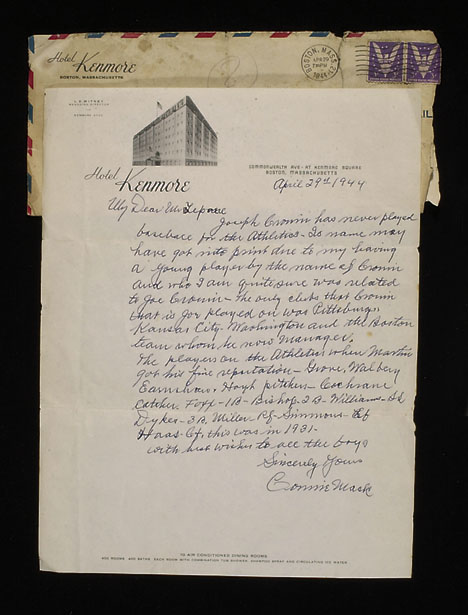 Hotel Kenmore
BOSTON, MASSACHUSETTS
BOSTON, MASS.
APR 29
1944
L. E. WITNEY
MANAGING DIRECTOR
COMMONWEALTH AVE · AT KENMORE SQUARE
BOSTON, MASSACHUSETTS
Hotel Kenmore
April 29th 1944
My Dear Mr Lepore
Joseph Cronin has never played
baseball for the Athletics - Is name may
have got into print due to my having
a young player by the name of Cronin
and who I am quite sure was related
to Joe Cronin - the only clubs that Cronin
that is Joe played on was Pittsburgh
Kansas City Washington and the Boston
team whom he now manager.
The players on the Athletics when Martin
got his fine reputation - Grove, Walberg
Earnshaw, Hoyt pitchers - Cochrane
Catcher Foxx - 1B - Bishop. 2B - Williams - SS
Dykes - 3B. Miller Rf - Simmons - Lf
Haas - Cf, this was in 1931 -
with best wishes to all the boys
Sincerely Yours
Connie Mack
AIR CONDITIONED DINING ROOMS
400 ROOMS 400 BATHS EACH ROOM WITH COMBINATION TUB SHOWER, SHAMPOO SPRAY AND CIRCULATING ICE WATER